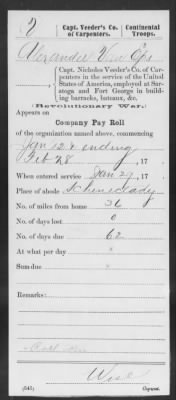 V
Capt. Veeder's Co. of Carpenters.
Continental Troops.
Alexander Van Eps
Capt. Nicholas Veeder's Co. of Car-
penters in the service of the United
States of America, employed at Sar-
atoga and Fort George in build-
ing barracks, bateaux, &c.
(Revolutionary War.)
Appears on
Company Pay Roll
of the organization named above, commencing
Jan 12 & ending
Feb 28, 17
When entered service Jan 27, 17
Place of abode Schenectady
No. of miles from home 36
No. of days lost 0
No. of days due 62
At what per day ×
Sum due ×
Remarks:
(545)
Copyist.